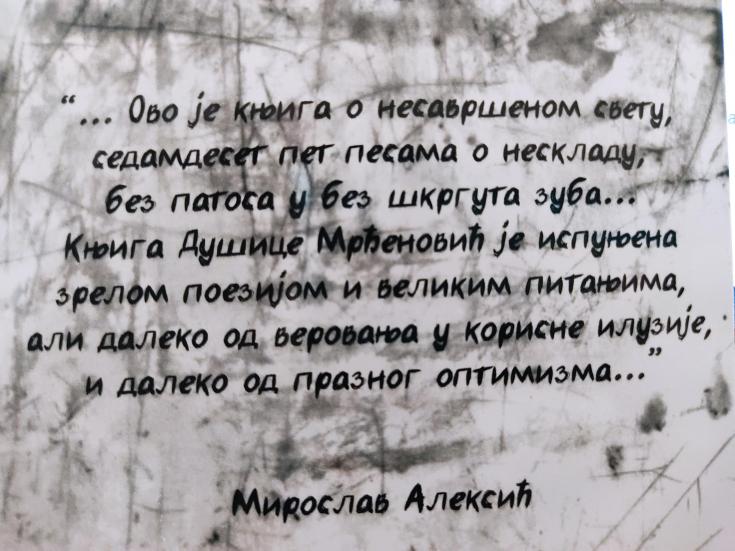 “... Ово је књига о несавршеном свету,
седамдесет пет песама о нескладу,
без патоса у без шкргута зуба...
Књига Душице Мрђеновић је испуњена
зрелом поезијом и великим питањима,
али далеко од веровања у корисне илузије,
и далеко од празног оптимизма...”
Мирослав Алексић